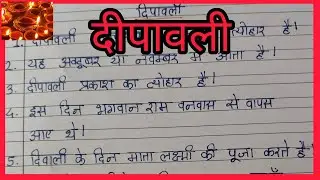 दीपावली
दीपावली
1. दीपावली त्योहार है।
2. यह अक्टूबर या नवम्बर में आता है।
3. दीपावली प्रकाश का त्योहार है।
4. इस दिन भगवान राम वनवास से वापस
आए थे।
5. दिवाली के दिन माता लक्ष्मी की पूजा करते है।